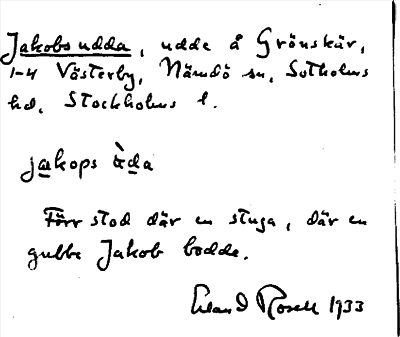 Jakobsudda, udde å Grönskär,
1-4 Västerby, Nämdö sn, Sotholms
hd, Stockholms l.
jakops àda
Förr stod där en stuga, där en
gubbe Jakob bodde.
Erland Rosell 1933